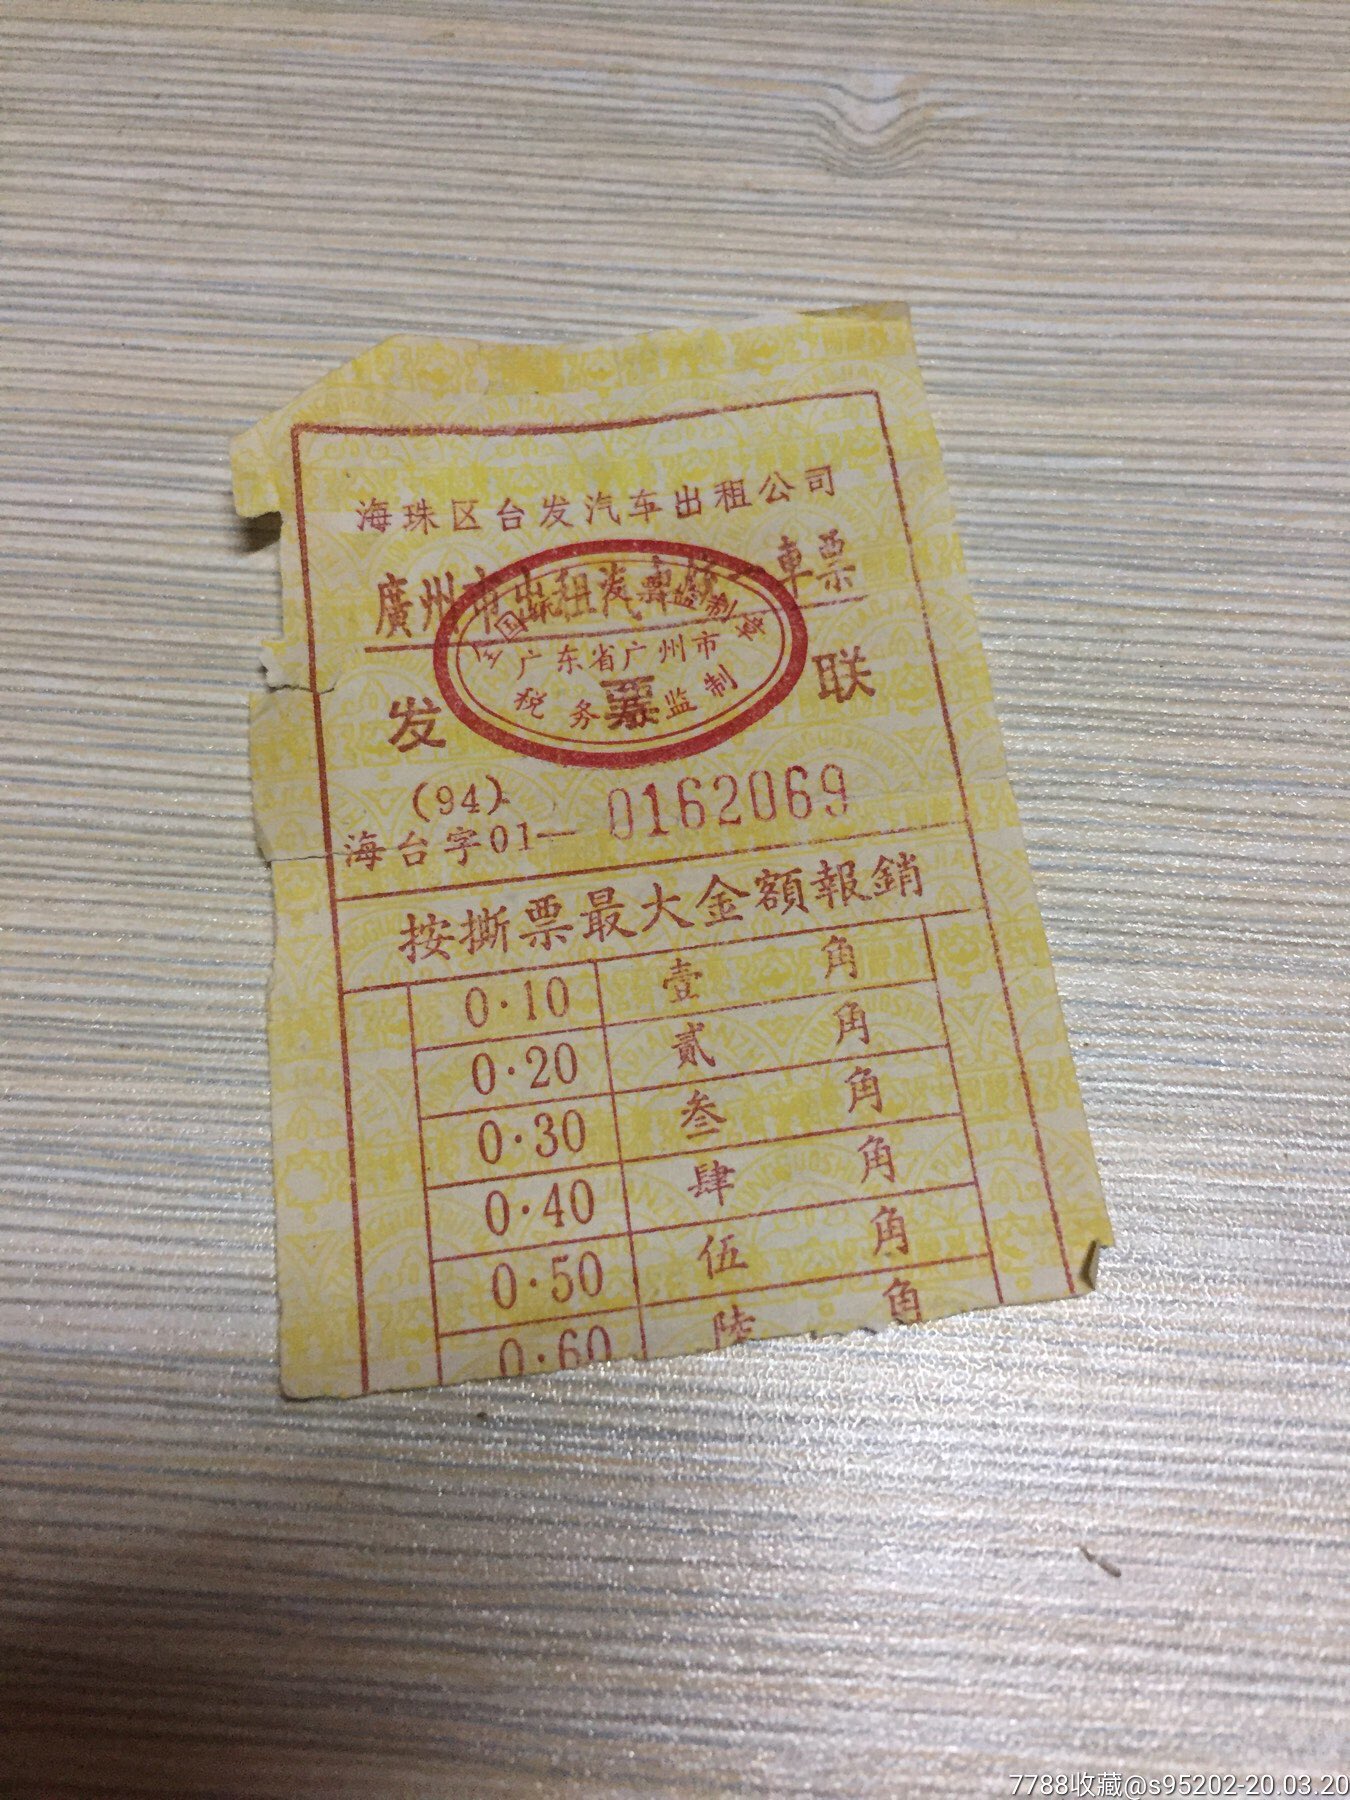 海珠区台发汽车出租公司
廣州市出租汽車統一車票
全国统一发票监制章
广东省广州市
税务 监制
发 票 联
(94)
海台字01— 0162069
按撕票最大金額報銷
0·10 壹 角
0·20 贰 角
0·30 叁 角
0·40 肆 角
0·50 伍 角
0·60 陸 角
7788收藏@s95202-20.03.20